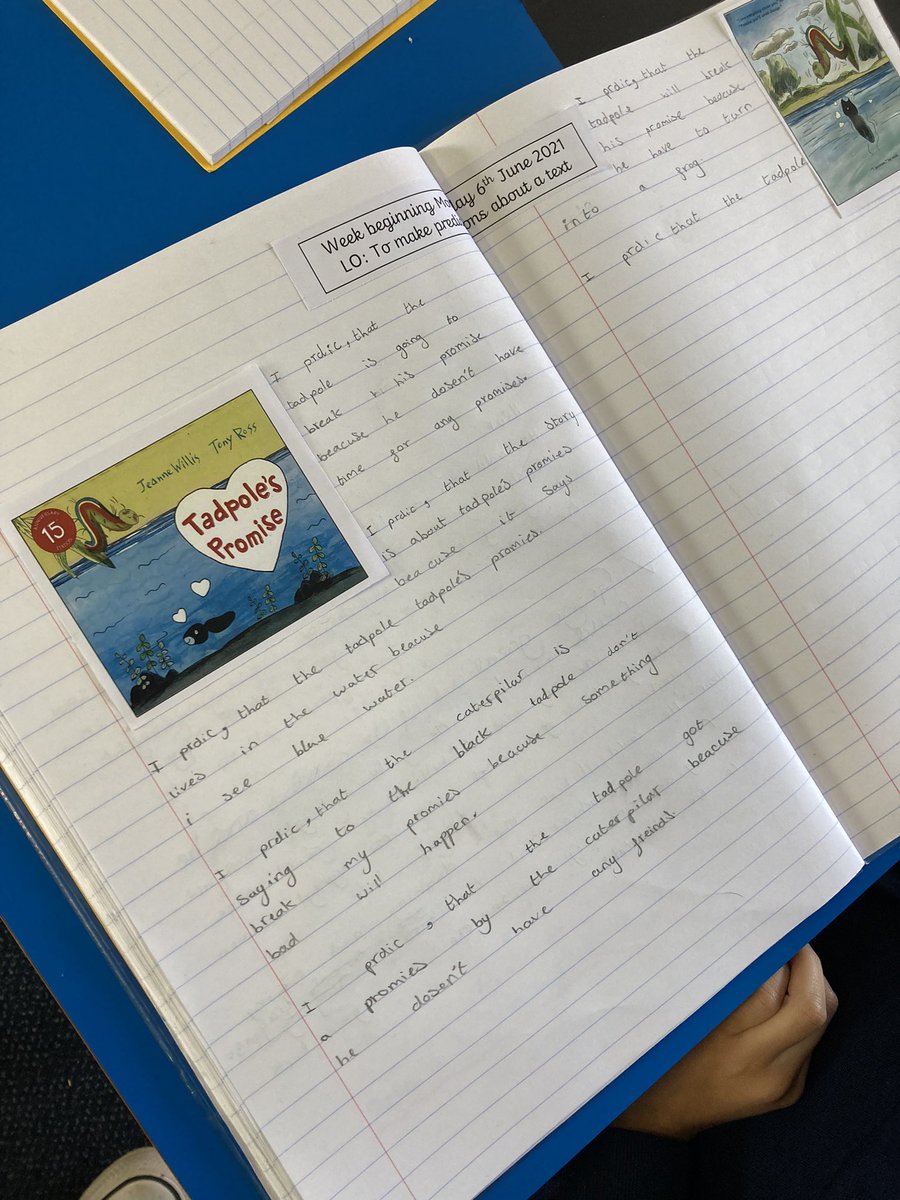 Week beginning Mo day 6th June 2021
LO: To make predi ons about a text
I prdic, that the
tadpole is going to
break his promise
beacuse he dosen't have
time for any promises.
I prdic, that the story
is about tadpole's promies
beacuse it says
tadpole's promies.
I prdic, that the tadpole
lived in the water beacuse
i see blue water.
I prdic, that the caterpilar is
saying to the black tadpole don't
break my promies beacuse something
bad will happen.
I prdic, that the tadpole got
a promies by the caterpilar beacuse
he dosen't have any freinds
Jeanne Willis Tony Ross
ANNIVERSARY
15
Tadpole's
Promise
I prdic, that the
tadpole will break
his promise beacuse
he have to turn
into a frog.
I prdic that the tadpole